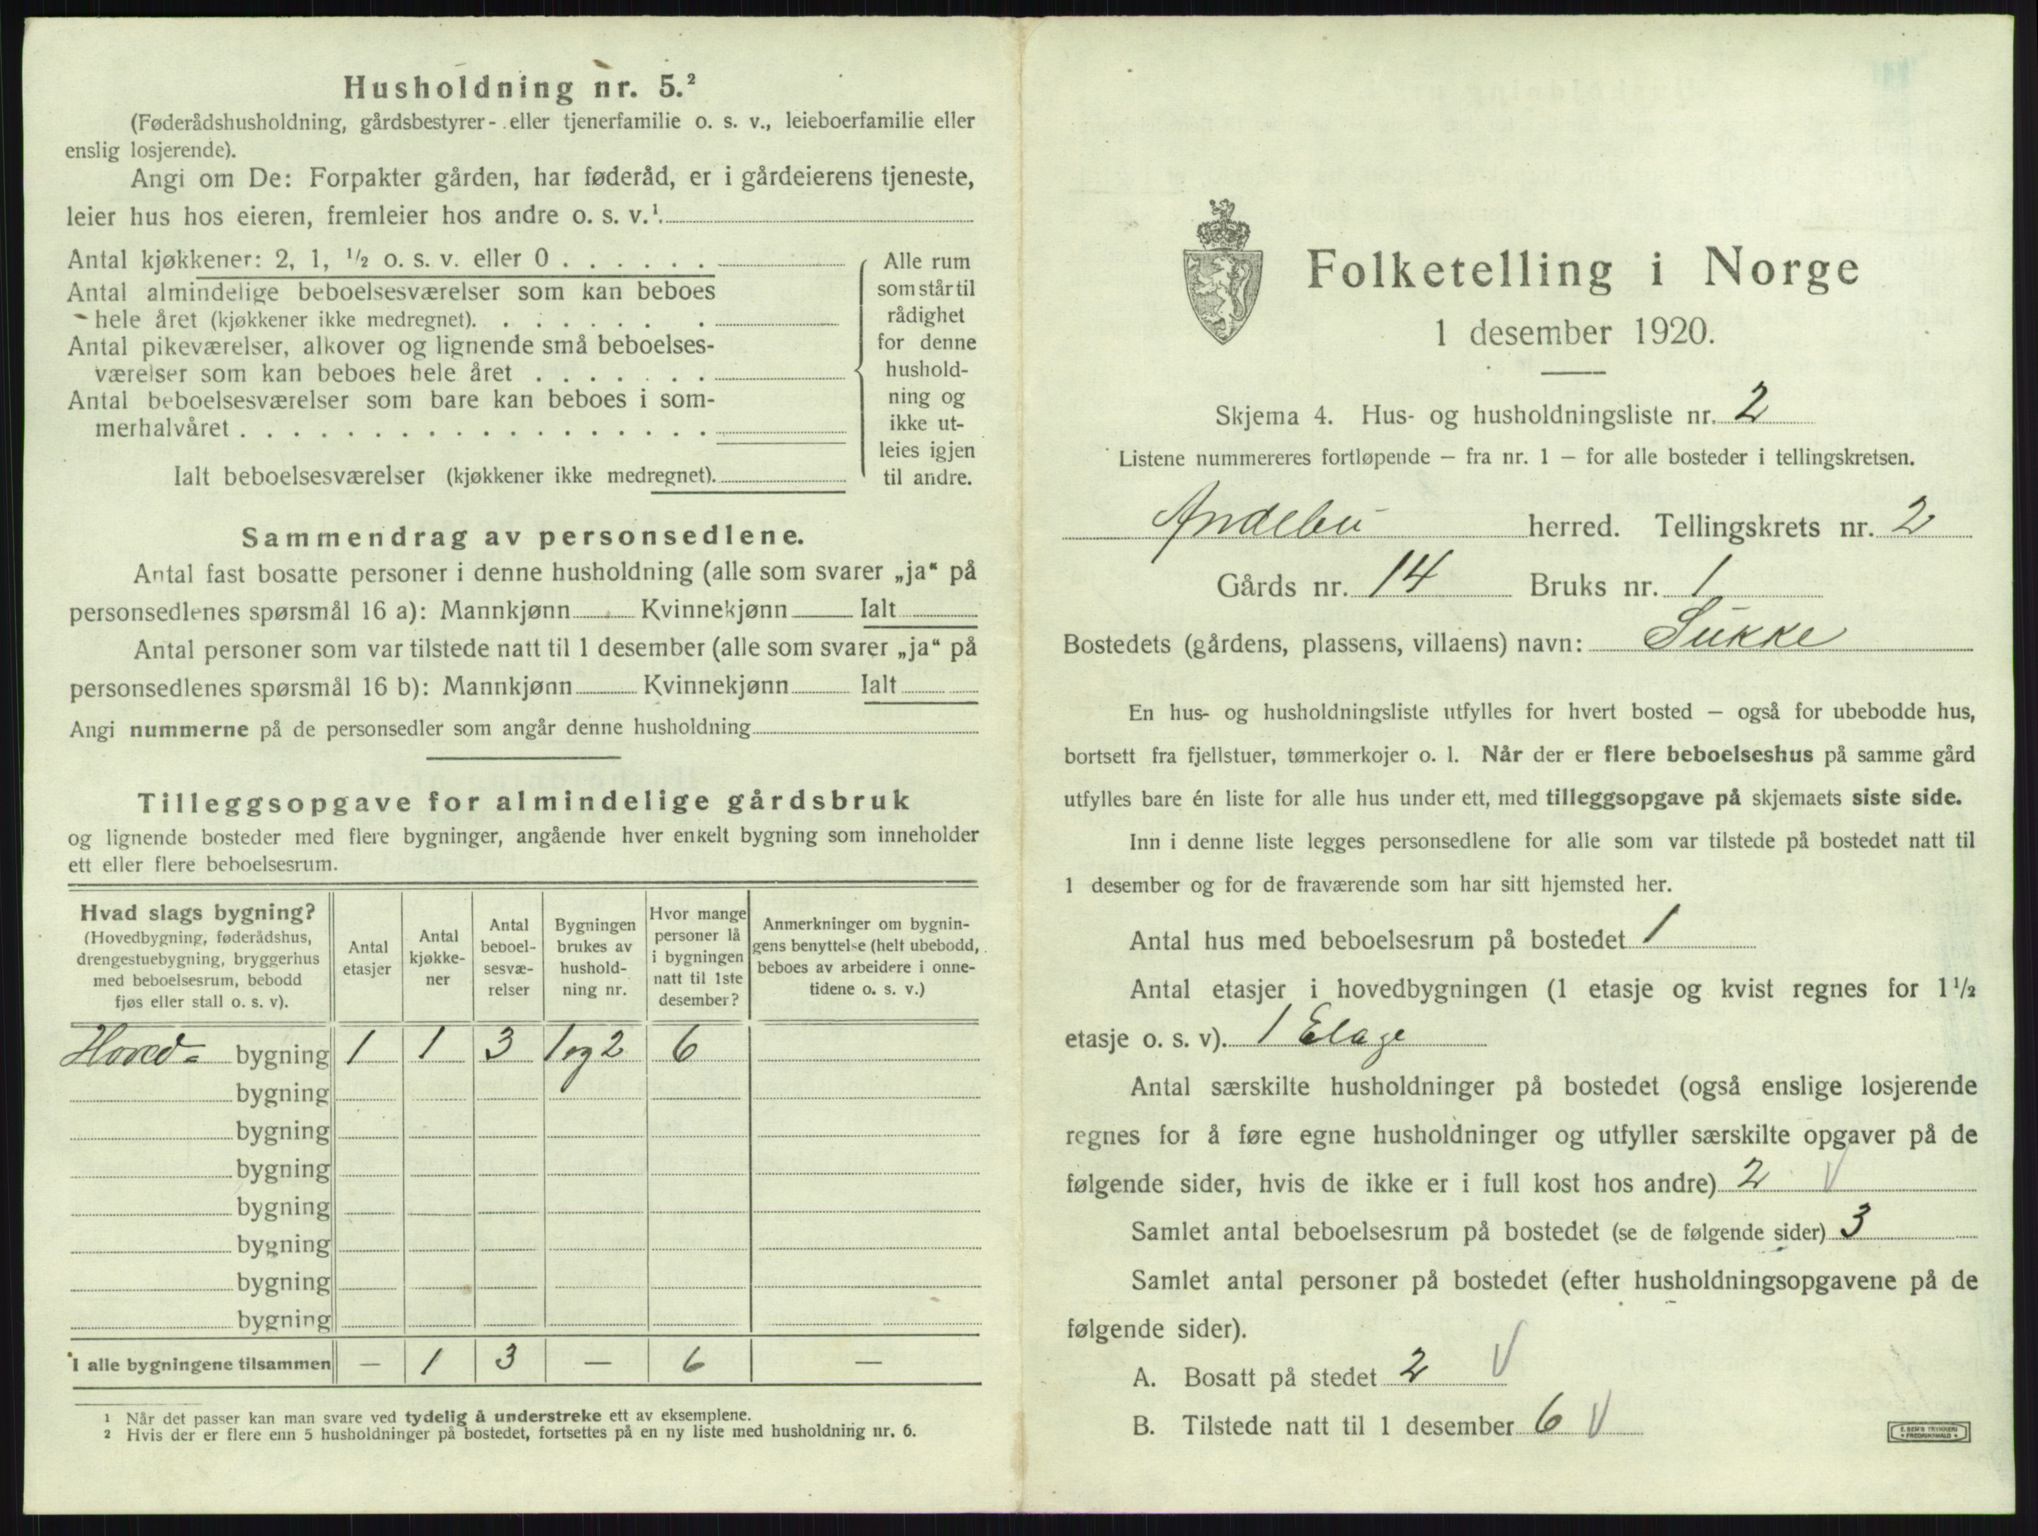 Husholdning nr. 5.²
(Føderådshusholdning, gårdsbestyrer- eller tjenerfamilie o. s. v., leieboerfamilie eller
enslig losjerende).
Angi om De: Forpakter gården, har føderåd, er i gårdeierens tjeneste,
leier hus hos eieren, fremleier hos andre o. s. v.¹
Antal kjøkkener: 2, 1, ½ o. s. v. eller 0 . . . . . .
Antal almindelige beboelsesværelser som kan beboes
hele året (kjøkkener ikke medregnet). . . . . . . .
Antal pikeværelser, alkover og lignende små beboelses-
værelser som kan beboes hele året . . . . . . .
Antal beboelsesværelser som bare kan beboes i som-
merhalvåret . . . . . . . . . . . . . . . . . .
Ialt beboelsesværelser (kjøkkener ikke medregnet).
Alle rum
som står til
rådighet
for denne
hushold-
ning og
ikke ut-
leies igjen
til andre.
Sammendrag av personsedlene.
Antal fast bosatte personer i denne husholdning (alle som svarer „ja“ på
personsedlenes spørsmål 16 a): Mannkjønn Kvinnekjønn Ialt
Antal personer som var tilstede natt til 1 desember (alle som svarer „ja“ på
personsedlenes spørsmål 16 b): Mannkjønn Kvinnekjønn Ialt
Angi nummerne på de personsedler som angår denne husholdning
Tilleggsopgave for almindelige gårdsbruk
og lignende bosteder med flere bygninger, angående hver enkelt bygning som inneholder
ett eller flere beboelsesrum.
Hvad slags bygning?
(Hovedbygning, føderådshus,
drengestuebygning, bryggerhus
med beboelsesrum, bebodd
fjøs eller stall o. s. v).
Antal
etasjer
Antal
kjøkke-
ner
Antal
beboel-
sesvæ-
relser
Bygningen
brukes av
hushold-
ning nr.
Hvor mange
personer lå
i bygningen
natt til 1ste
desember?
Anmerkninger om bygnin-
gens benyttelse (helt ubebodd,
beboes av arbeidere i onne-
tidene o. s. v.)
Hoved- bygning 1 1 3 1 og 2 6
bygning
bygning
bygning
bygning
bygning
bygning
bygning
I alle bygningene tilsammen — 1 3 — 6 —
¹ Når det passer kan man svare ved tydelig å understreke ett av eksemplene.
² Hvis der er flere enn 5 husholdninger på bostedet, fortsettes på en ny liste med husholdning nr. 6.
Folketelling i Norge
1 desember 1920.
Skjema 4. Hus- og husholdningsliste nr. 2
Listene nummereres fortløpende — fra nr. 1 — for alle bosteder i tellingskretsen.
Andebu herred. Tellingskrets nr. 2
Gårds nr. 14 Bruks nr. 1
Bostedets (gårdens, plassens, villaens) navn: Sukke
En hus- og husholdningsliste utfylles for hvert bosted — også for ubebodde hus,
bortsett fra fjellstuer, tømmerkojer o. l. Når der er flere beboelseshus på samme gård
utfylles bare én liste for alle hus under ett, med tilleggsopgave på skjemaets siste side.
Inn i denne liste legges personsedlene for alle som var tilstede på bostedet natt til
1 desember og for de fraværende som har sitt hjemsted her.
Antal hus med beboelsesrum på bostedet 1
Antal etasjer i hovedbygningen (1 etasje og kvist regnes for 1½
etasje o. s. v). 1 Etage
Antal særskilte husholdninger på bostedet (også enslige losjerende
regnes for å føre egne husholdninger og utfyller særskilte opgaver på de
følgende sider, hvis de ikke er i full kost hos andre) 2 V
Samlet antal beboelsesrum på bostedet (se de følgende sider) 3
Samlet antal personer på bostedet (efter husholdningsopgavene på de
følgende sider).
A. Bosatt på stedet 2 V
B. Tilstede natt til 1 desember 6 V
E. SEM'S TRYKKERI
• FREDRIKSHALD •